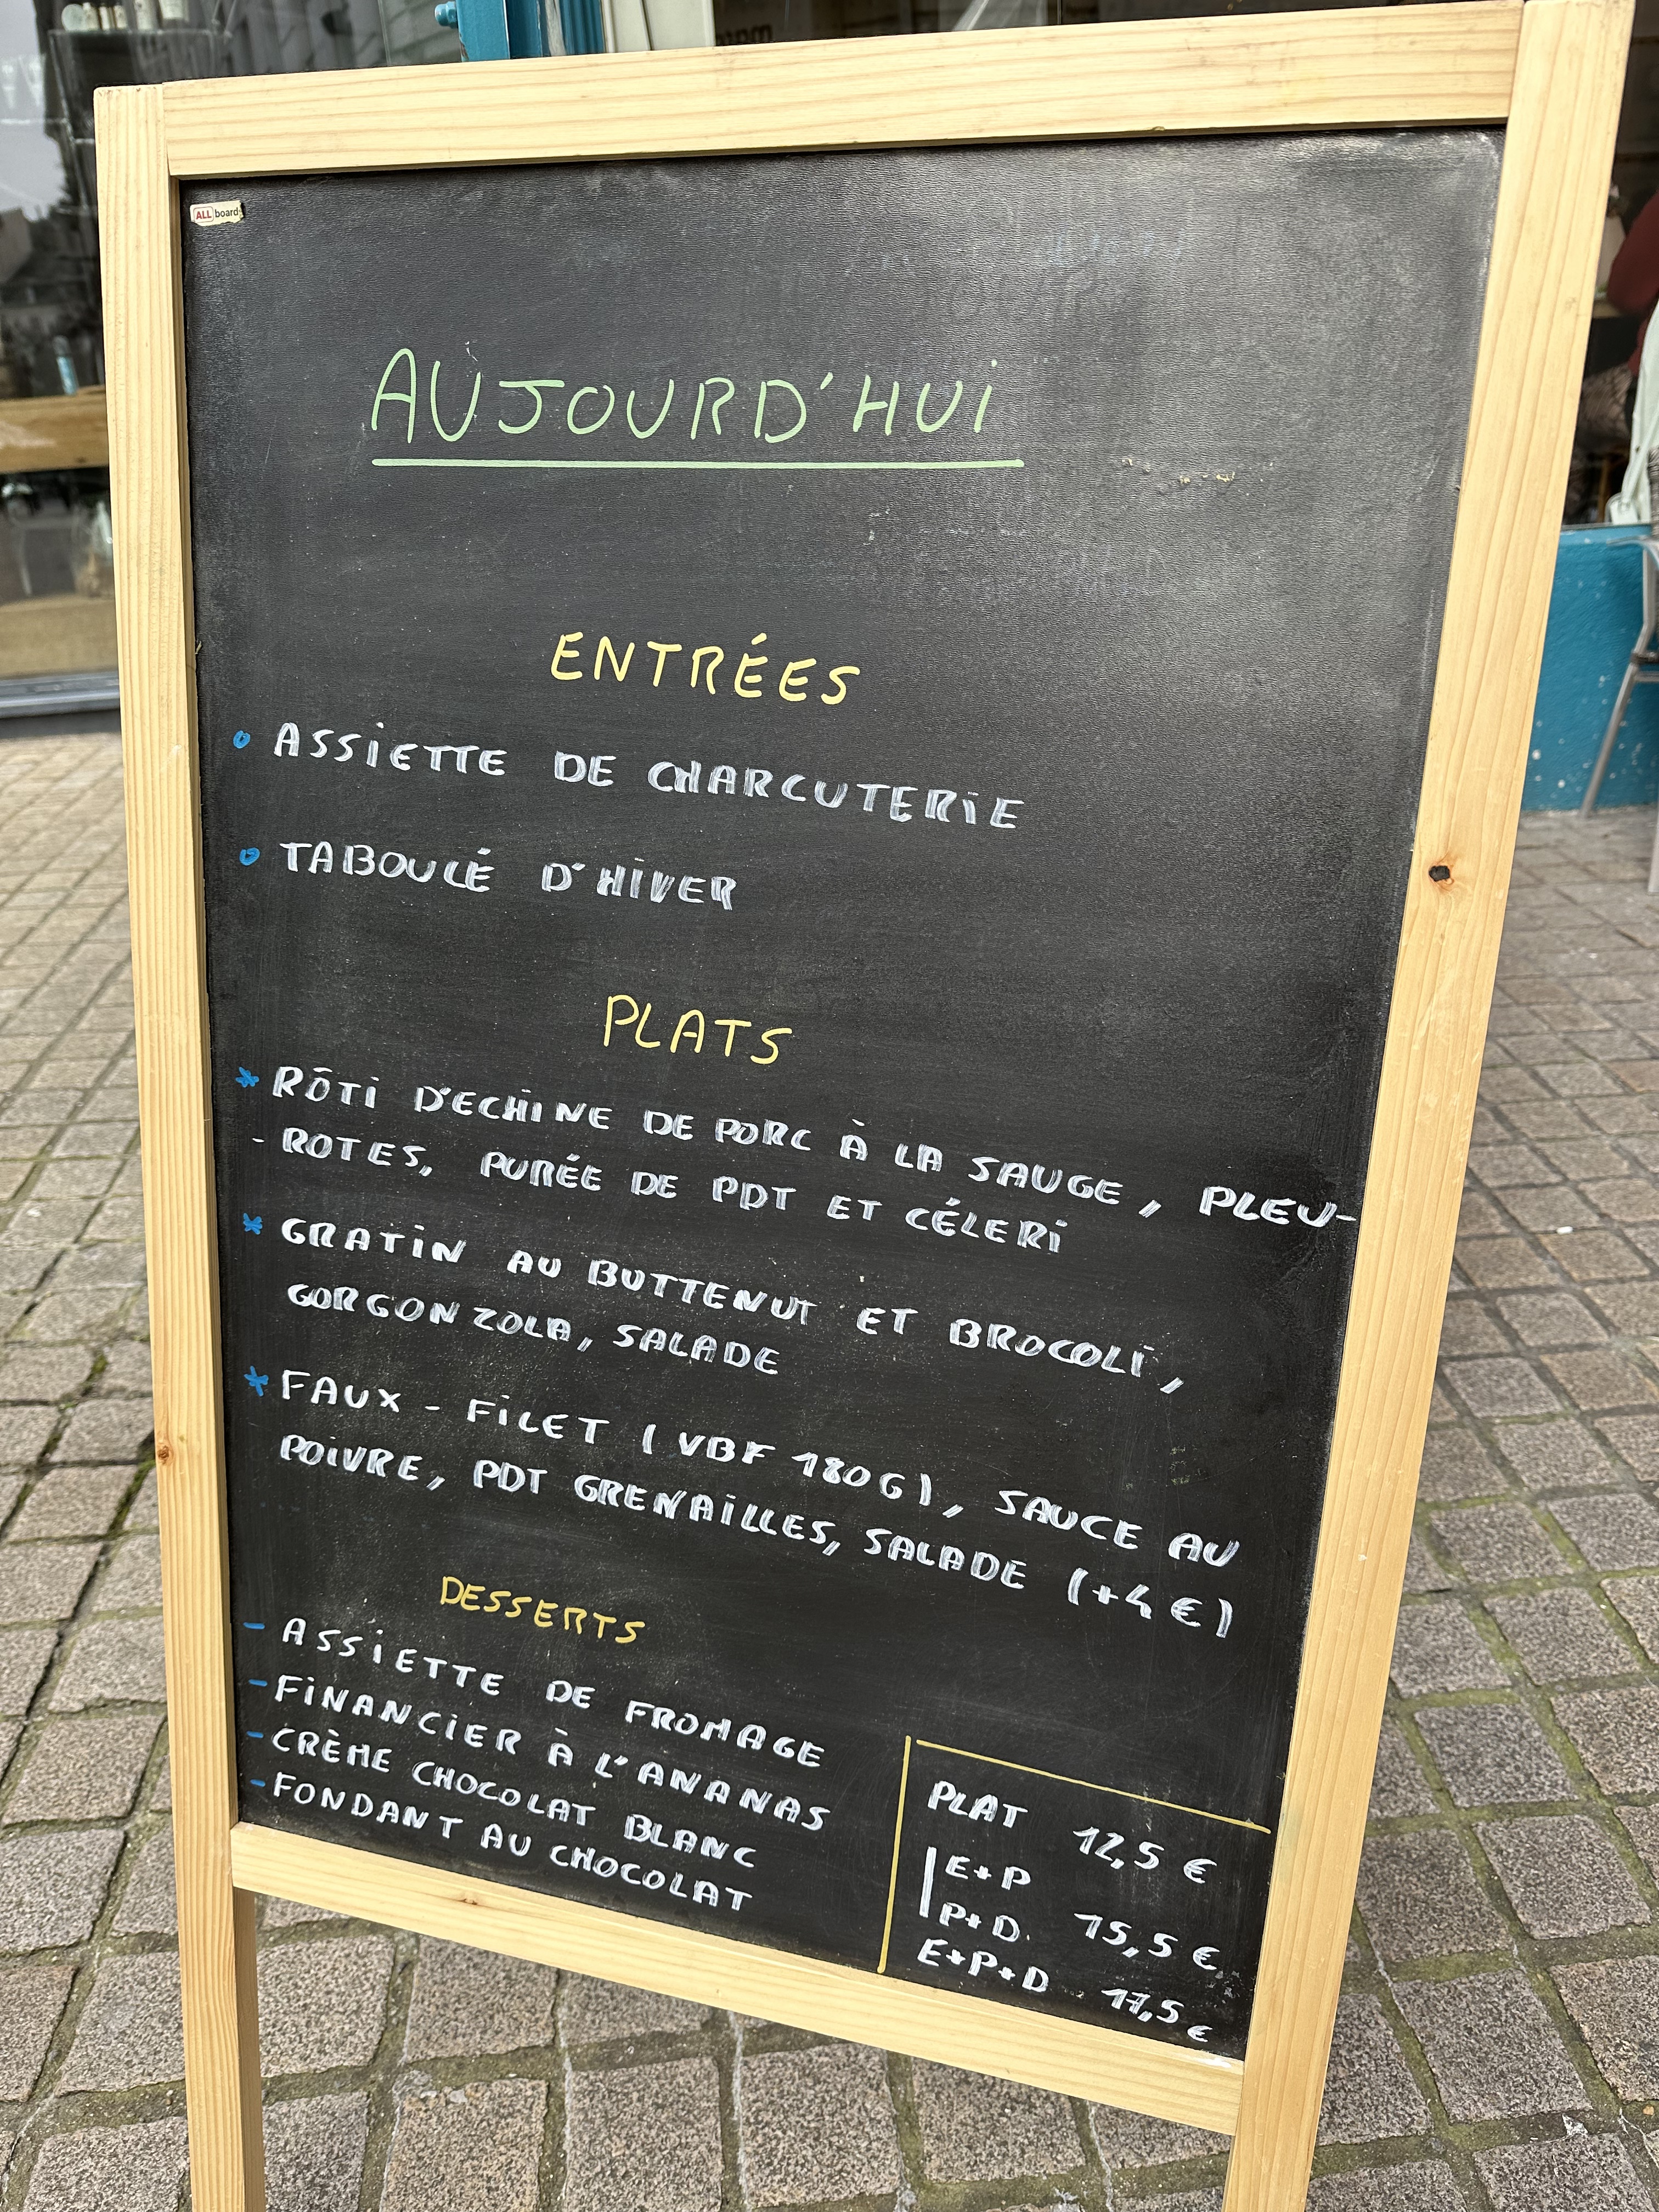 ALL board
AUJOURD'HUI
ENTRÉES
ASSIETTE DE CHARCUTERIE
TABOULÉ D'HIVER
PLATS
* RÔTI D'ECHINE DE PORC À LA SAUGE, PLEU-
- ROTES, PURÉE DE PDT ET CÉLERI
* GRATIN AU BUTTENUT ET BROCOLI,
GORGONZOLA, SALADE
* FAUX-FILET (VBF 180G), SAUCE AU
POIVRE, PDT GRENAILLES, SALADE (+4€)
DESSERTS
- ASSIETTE DE FROMAGE
- FINANCIER À L'ANANAS
- CRÈME CHOCOLAT BLANC
- FONDANT AU CHOCOLAT
PLAT 12,5 €
E+P
P+D 15,5 €
E+P+D 17,5 €